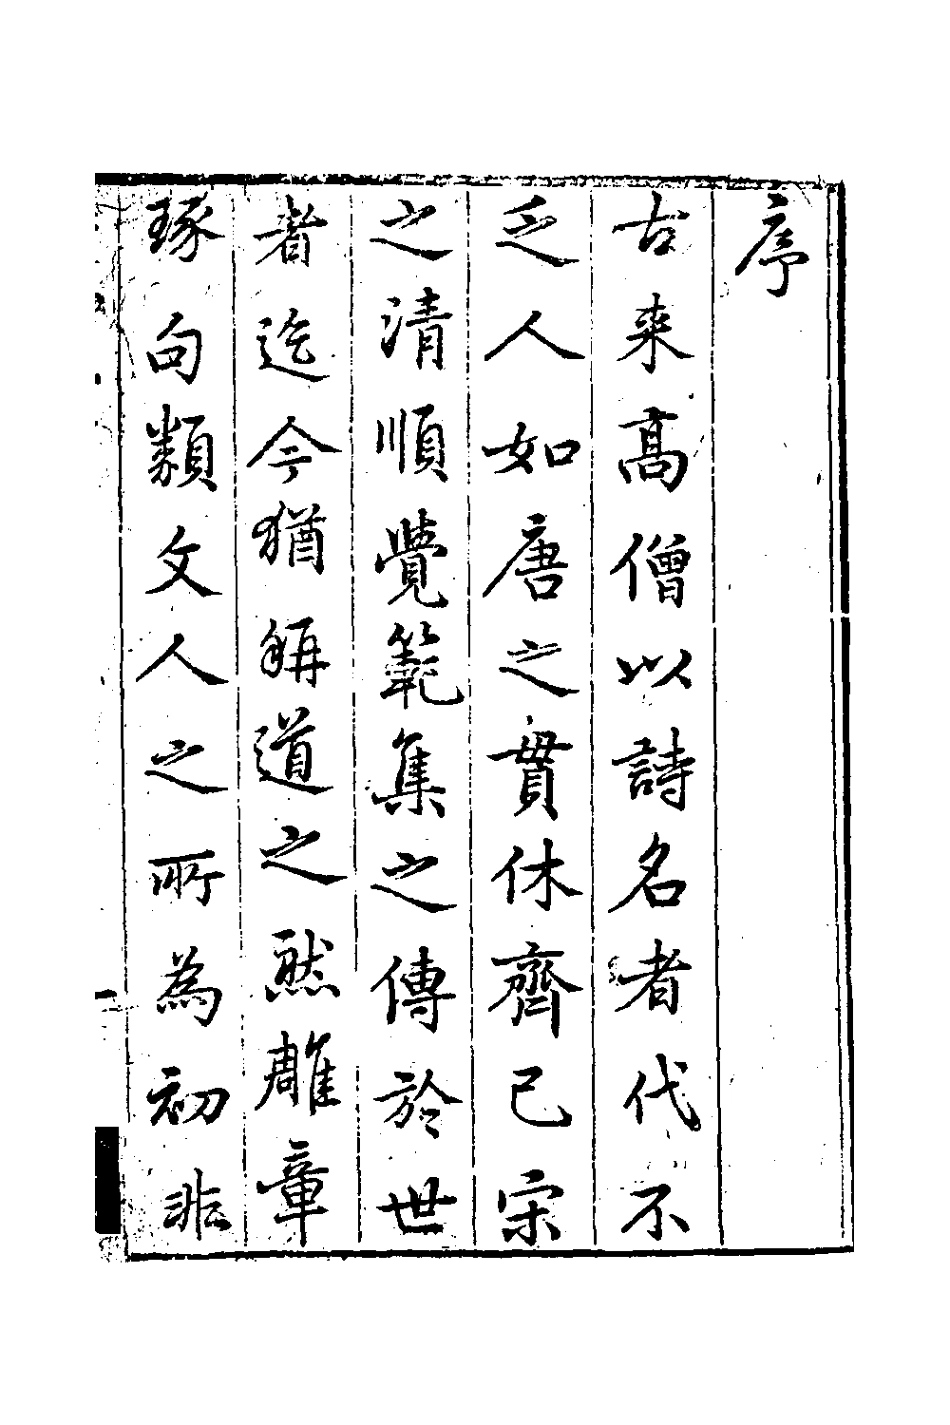 序
古來髙僧以詩名者代不
乏人如唐之貫休齊己宋
之清順覺範集之傳於世
者迄今猶稱道之然雕章
琢句類文人之所為初非